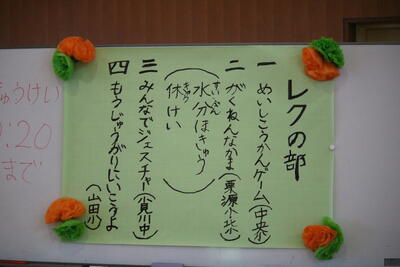 レクの部
一 めいしこうかんゲーム(中央小)
二 がくねんなかま(栗源小・北小)
(水分ほきゅう
すいぶん
休けい)
きゅう
三 みんなでジェスチャー(小見川中)
四 もうじゅうがりにいこうよ
(山田小)
ゅうけい
:20
まで